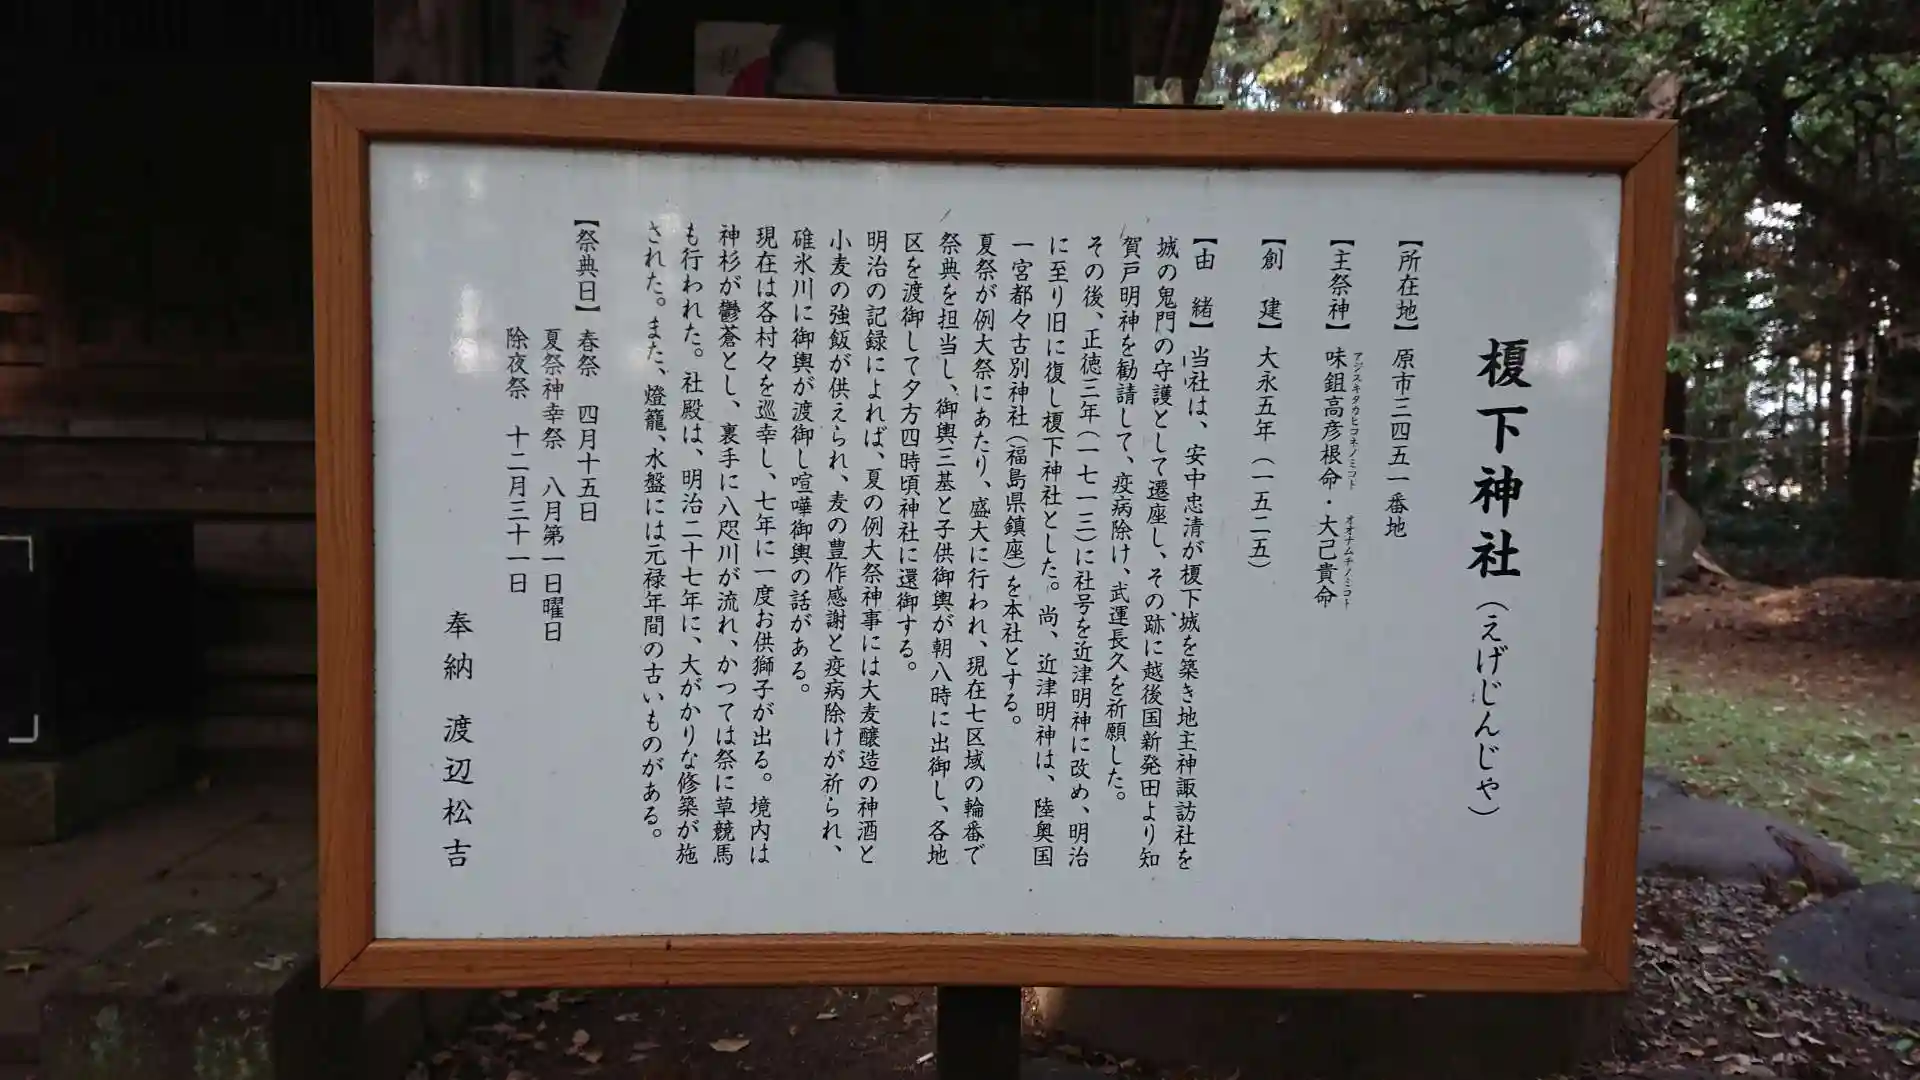 榎下神社(えげじんじゃ)
【所在地】 原市三四五一番地
アジスキタカヒコネノミコト オオナムチノミコト
【主祭神】 味鉏高彦根命・大己貴命
【創 建】 大永五年(一五二五)
【由 緒】 当社は、安中忠清が榎下城を築き地主神諏訪社を
城の鬼門の守護として遷座し、その跡に越後国新発田より知
賀戸明神を勧請して、疫病除け、武運長久を祈願した。
その後、正徳三年(一七一三)に社号を近津明神に改め、明治
に至り旧に復し榎下神社とした。尚、近津明神は、陸奥国
一宮都々古別神社(福島県鎮座)を本社とする。
夏祭が例大祭にあたり、盛大に行われ、現在七区域の輪番で
祭典を担当し、御輿三基と子供御輿が朝八時に出御し、各地
区を渡御して夕方四時頃神社に還御する。
明治の記録によれば、夏の例大祭神事には大麦醸造の神酒と
小麦の強飯が供えられ、麦の豊作感謝と疫病除けが祈られ、
碓氷川に御輿が渡御し喧嘩御輿の話がある。
現在は各村々を巡幸し、七年に一度お供獅子が出る。境内は
神杉が鬱蒼とし、裏手に八咫川が流れ、かつては祭に草競馬
も行われた。社殿は、明治二十七年に、大がかりな修築が施
された。また、燈籠、水盤には元禄年間の古いものがある。
【祭典日】 春祭 四月十五日
夏祭神幸祭 八月第一日曜日
除夜祭 十二月三十一日
奉納 渡辺松吉